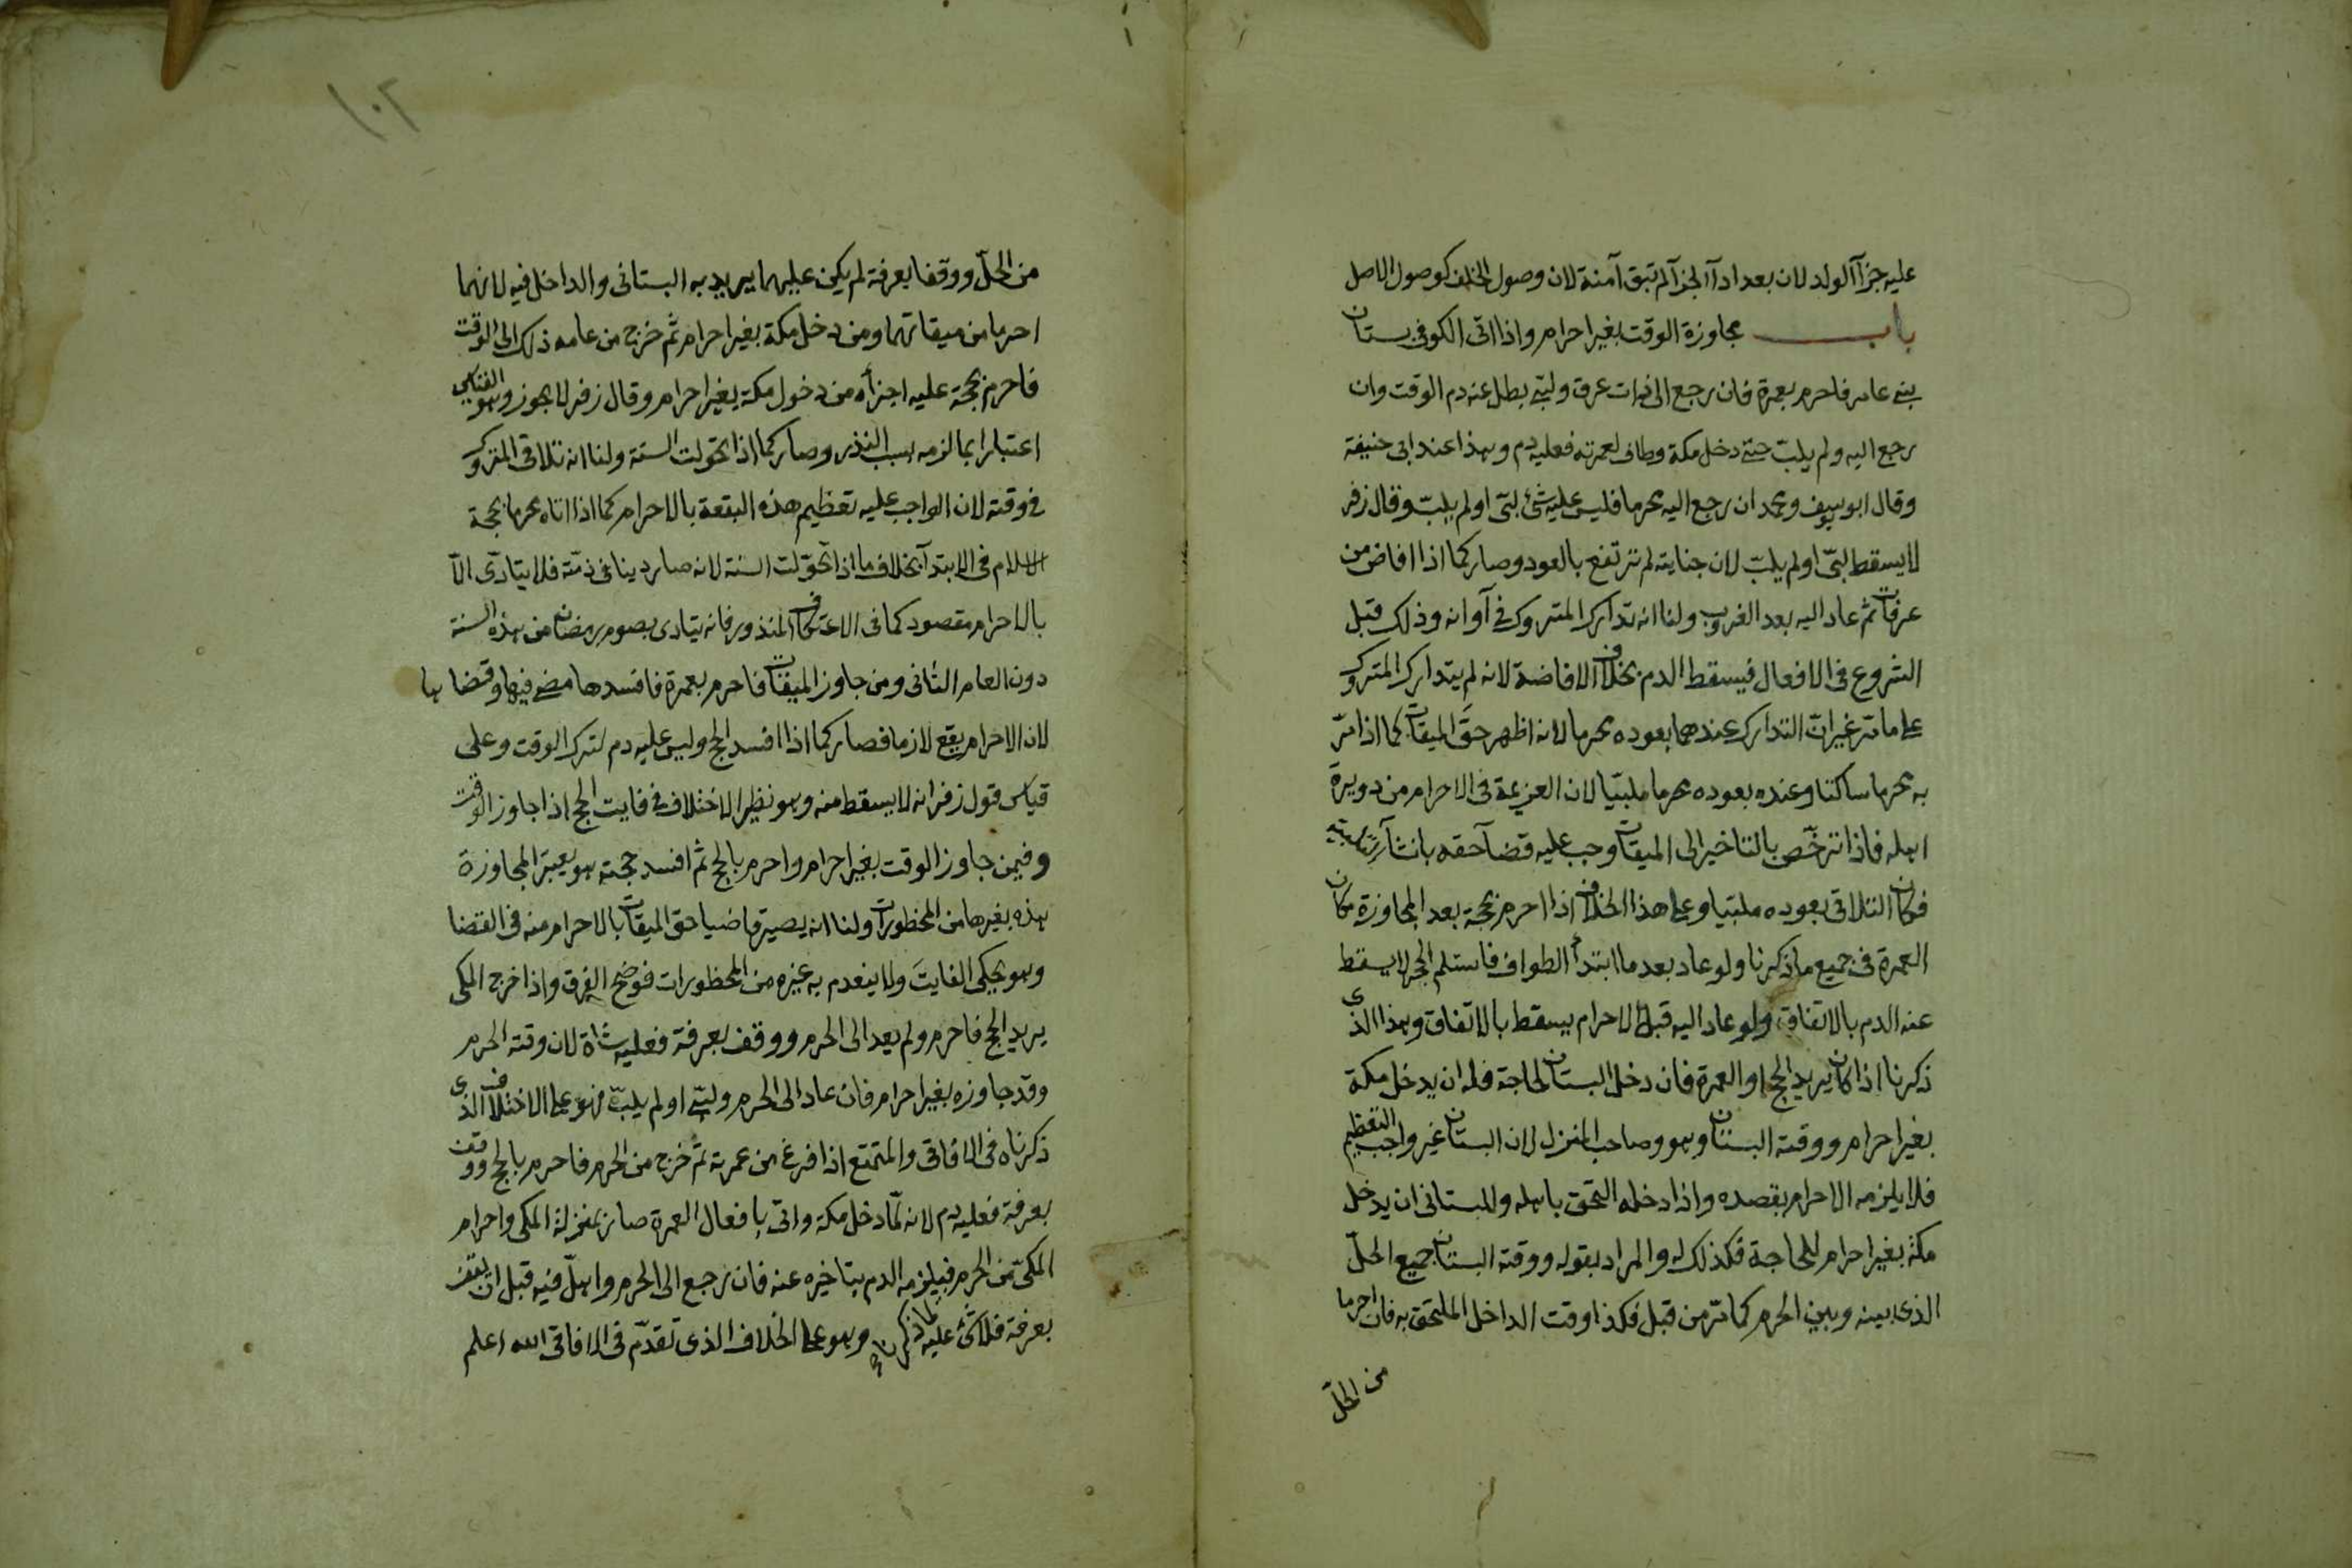 عليه جزآ الولد لان بعد ادآ الجزآ لم تبق آمنة لان وصول الخلف كوصول الاصل
باب مجاوزة الوقت بغير احرام واذا اتى الكوفي بستان
بنى عامر فاحرم بعمرة فان رجع الى ذات عرق ولبّى بطل عنه دم الوقت وان
رجع اليه ولم يلبّ حتى دخل مكة وطاف لعمرته فعليه دم وهذا عند ابى حنيفة
وقال ابو يوسف ومحمد ان رجع اليه محرما فليس عليه شئ لبّى او لم يلبّ وقال زفر
لا يسقط لبّى او لم يلبّ لان جنايته لم ترتفع بالعود وصار كما اذا افاض من
عرفات ثم عاد اليه بعد الغروب ولنا انه تدارك المتروك في آوانه وذلك قبل
الشروع في الافعال فيسقط الدم بخلاف الافاضة لانه لم يتدارك المتروك
على ما مرّ غير انّ التدارك عندهما بعوده محرما لانه اظهر حقّ الميقات كما اذا مرّ
به محرما ساكتا وعنده بعوده محرما ملبّيا لان العزيمة في الاحرام من دويرة
اهله فاذا ترخّص بالتاخير الى الميقات وجب عليه قضآ حقه بانشآ تلبيته
فكان التلاقى بعوده ملبّيا وعلى هذا الخلاف اذا احرم بحجة بعد المجاوزة مكان
العمرة فى جميع ما ذكرنا ولو عاد بعد ما ابتدأ الطواف فاستلم الحجر لا يسقط
عنه الدم بالاتفاق ولو عاد اليه قبل الاحرام يسقط بالاتفاق وهذا الذى
ذكرنا اذا كان يريد الحج او العمرة فان دخل البستان لحاجة فله ان يدخل مكة
بغير احرام ووقته البستان وهو وصاحب المنزل لان البستان غير واجب التعظيم
فلا يلزمه الاحرام بقصده واذا دخله التحق باهله وللبستانى ان يدخل
مكة بغير احرام للحاجة فكذلك له والمراد بقوله ووقته البستان جميع الحلّ
الذى بينه وبين الحرم كما مرّ من قبل فكذا وقت الداخل الملتحق به فان احرما
من الحلّ
١٠٢
من الحلّ ووقفا بعرفة لم يكن عليهما يريد به البستانى والداخل فيه لانهما
احرما من ميقاتهما ومن دخل مكة بغير احرام ثم خرج من عامه ذلك الى الوقت
فاحرم بحجة عليه اجزأه من دخول مكة بغير احرام وقال زفر لا يجوز وهو القياس
اعتبارا بما لزمه بسبب النذر وصار كما اذا تحولت السنة ولنا انه تلاقى المتروك
فى وقته لان الواجب عليه تعظيم هذه البقعة بالاحرام كما اذا اتاه محرما بحجة
الاسلام فى الابتدآ بخلاف ما اذا تحوّلت السنة لانه صار دينا فى ذمّته فلا يتادّى الّا
بالاحرام مقصود كما فى الاعتكاف المنذور فانه يتادى بصوم رمضان من هذه السنة
دون العام الثانى ومن جاوز الميقات فاحرم بعمرة فافسدها مضى فيها وقضاها
لان الاحرام يقع لازما فصار كما اذا افسد الحج وليس عليه دم لترك الوقت وعلى
قياس قول زفر انه لا يسقط منه وهو نظير الاختلاف فى فايت الحج اذا جاوز الوقت
وفيمن جاوز الوقت بغير احرام واحرم بالحج ثم افسد حجته هو يعتبر المجاوزة
هذه بغيرها من المحظورات ولنا انه يصير قاضيا حق الميقات بالاحرام منه فى القضا
وهو يحكى الفايت ولا ينعدم به غيره من المحظورات فوضح الفرق واذا خرج المكى
يريد الحج فاحرم ولم يعد الى الحرم ووقف بعرفة فعليه شاة لان وقته الحرم
وقد جاوزه بغير احرام فان عاد الى الحرم ولبّى او لم يلبّ فهو على الاختلاف الذى
ذكرناه فى الافاقى والمتمتع اذا فرغ من عمرته ثم خرج من الحرم فاحرم بالحج ووقف
بعرفة فعليه دم لانه لمّا دخل مكة واتى بافعال العمرة صار بمنزلة المكى واحرام
المكىّ من الحرم فيلزمه الدم بتاخيره عنه فان رجع الى الحرم واهلّ فيه قبل ان يقف
بعرفة فلا شئ عليه لما ذكرناه وهو على الخلاف الذى تقدّم فى الافاقى الله اعلم